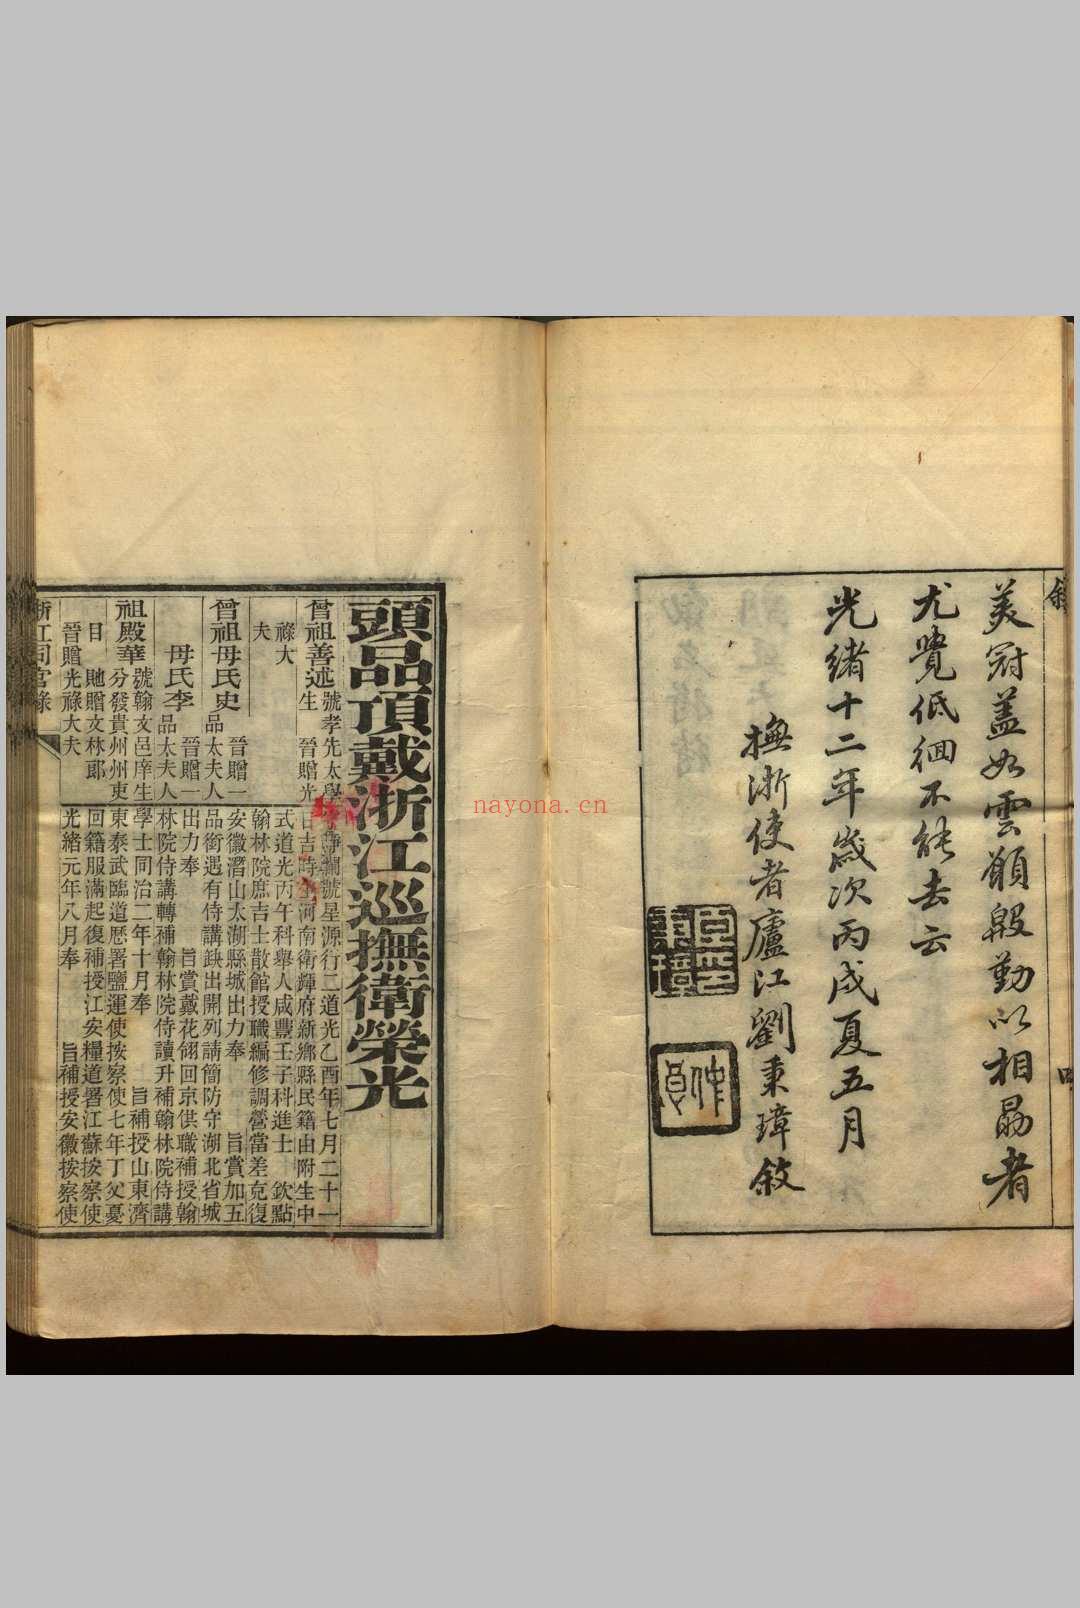 美冠蓋如雲願殷勤以相勗者
尤覺低徊不能去云
光緒十二年歲次丙戌夏五月
撫浙使者廬江劉秉璋敘
頭品頂戴浙江巡撫衛榮光
曾祖善述
號孝先太學
生 晉贈光
祿大
夫
曾祖母氏史
晉贈一
品太夫人
母氏李
晉贈一
品太夫人
祖殿華
號翰文邑庠生
分發貴州州吏
目 貤贈文林郎
晉贈光祿大夫
瀾號星源行二道光乙酉年七月二十一
日吉時生河南衛輝府新鄉縣民籍由附生中
式道光丙午科舉人咸豐壬子科進士 欽點
翰林院庶吉士散館授職編修調營當差克復
安徽潛山太湖縣城出力奉 旨賞加五
品銜遇有侍講缺出開列請簡防守湖北省城
出力奉 旨賞戴花翎回京供職補授翰
林院侍講轉補翰林院侍讀升補翰林院侍講
學士同治二年十月奉 旨補授山東濟
東泰武臨道歷署鹽運使按察使七年丁父憂
回籍服滿起復補授江安糧道署江蘇按察使
光緒元年八月奉 旨補授安徽按察使
浙江同官錄
nayona.cn